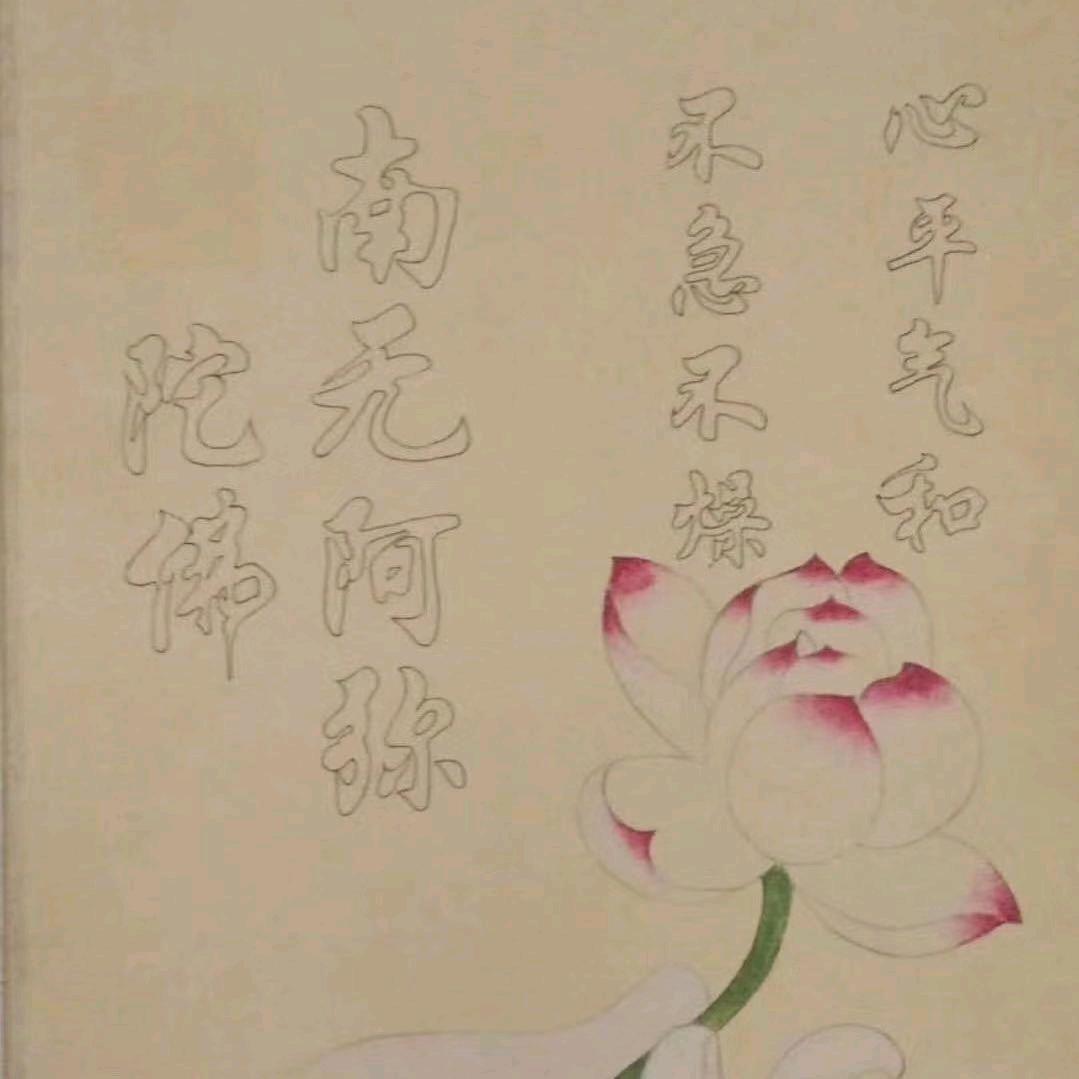 心平气和
不急不燥
南无阿弥
陀佛